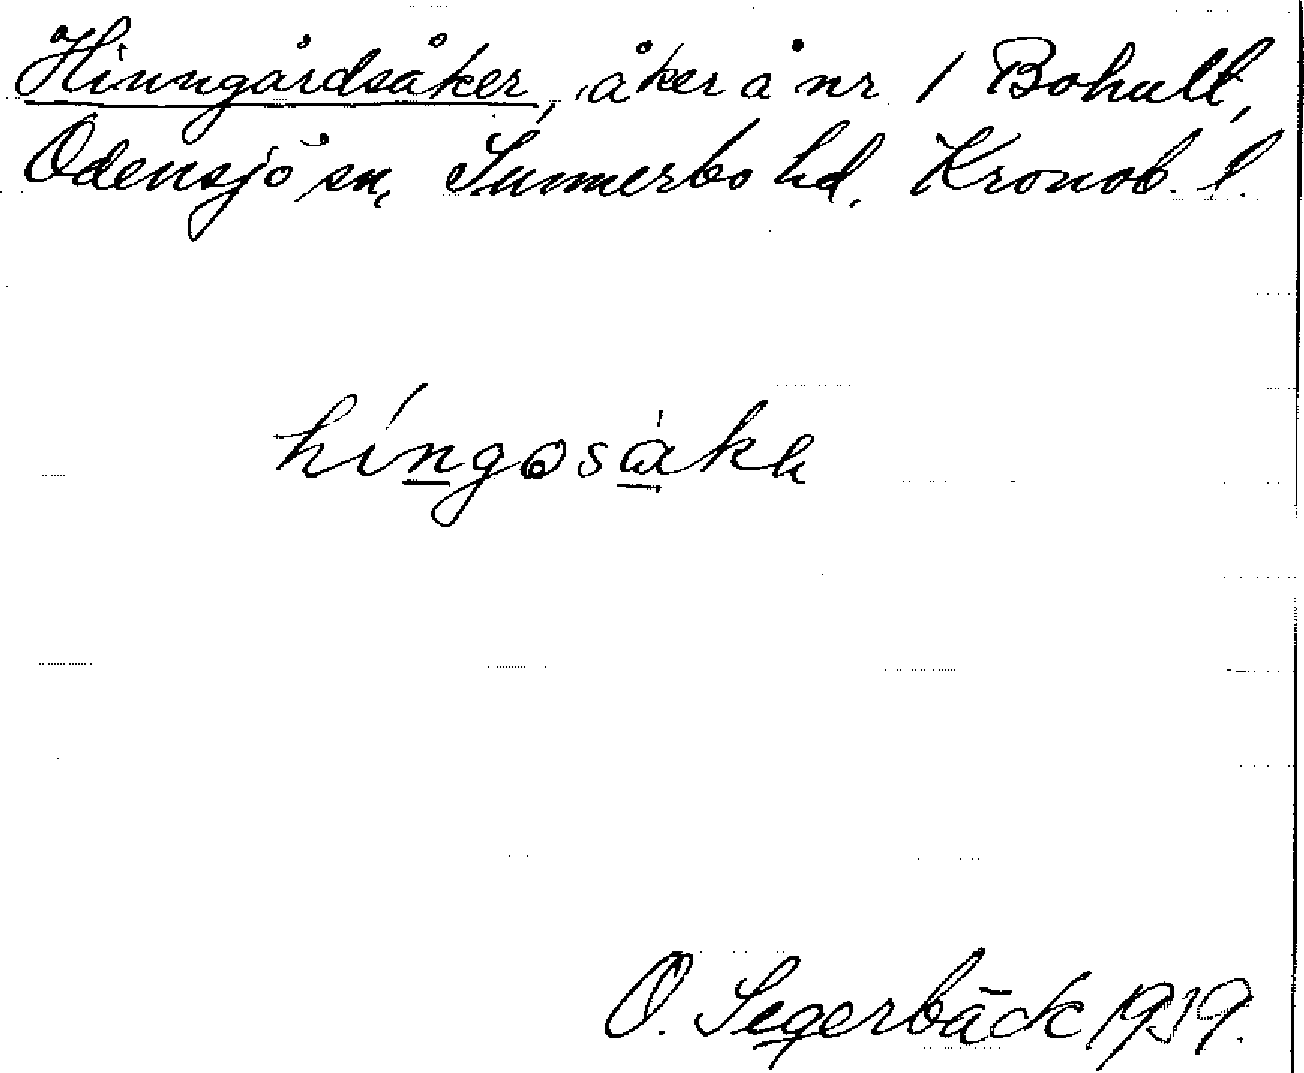 Hinngårdsåker, åker å nr 1 Bohult,
Odensjö sn, Sunnerbo hd. Kronob. l.
O. Segerbäck 1939.